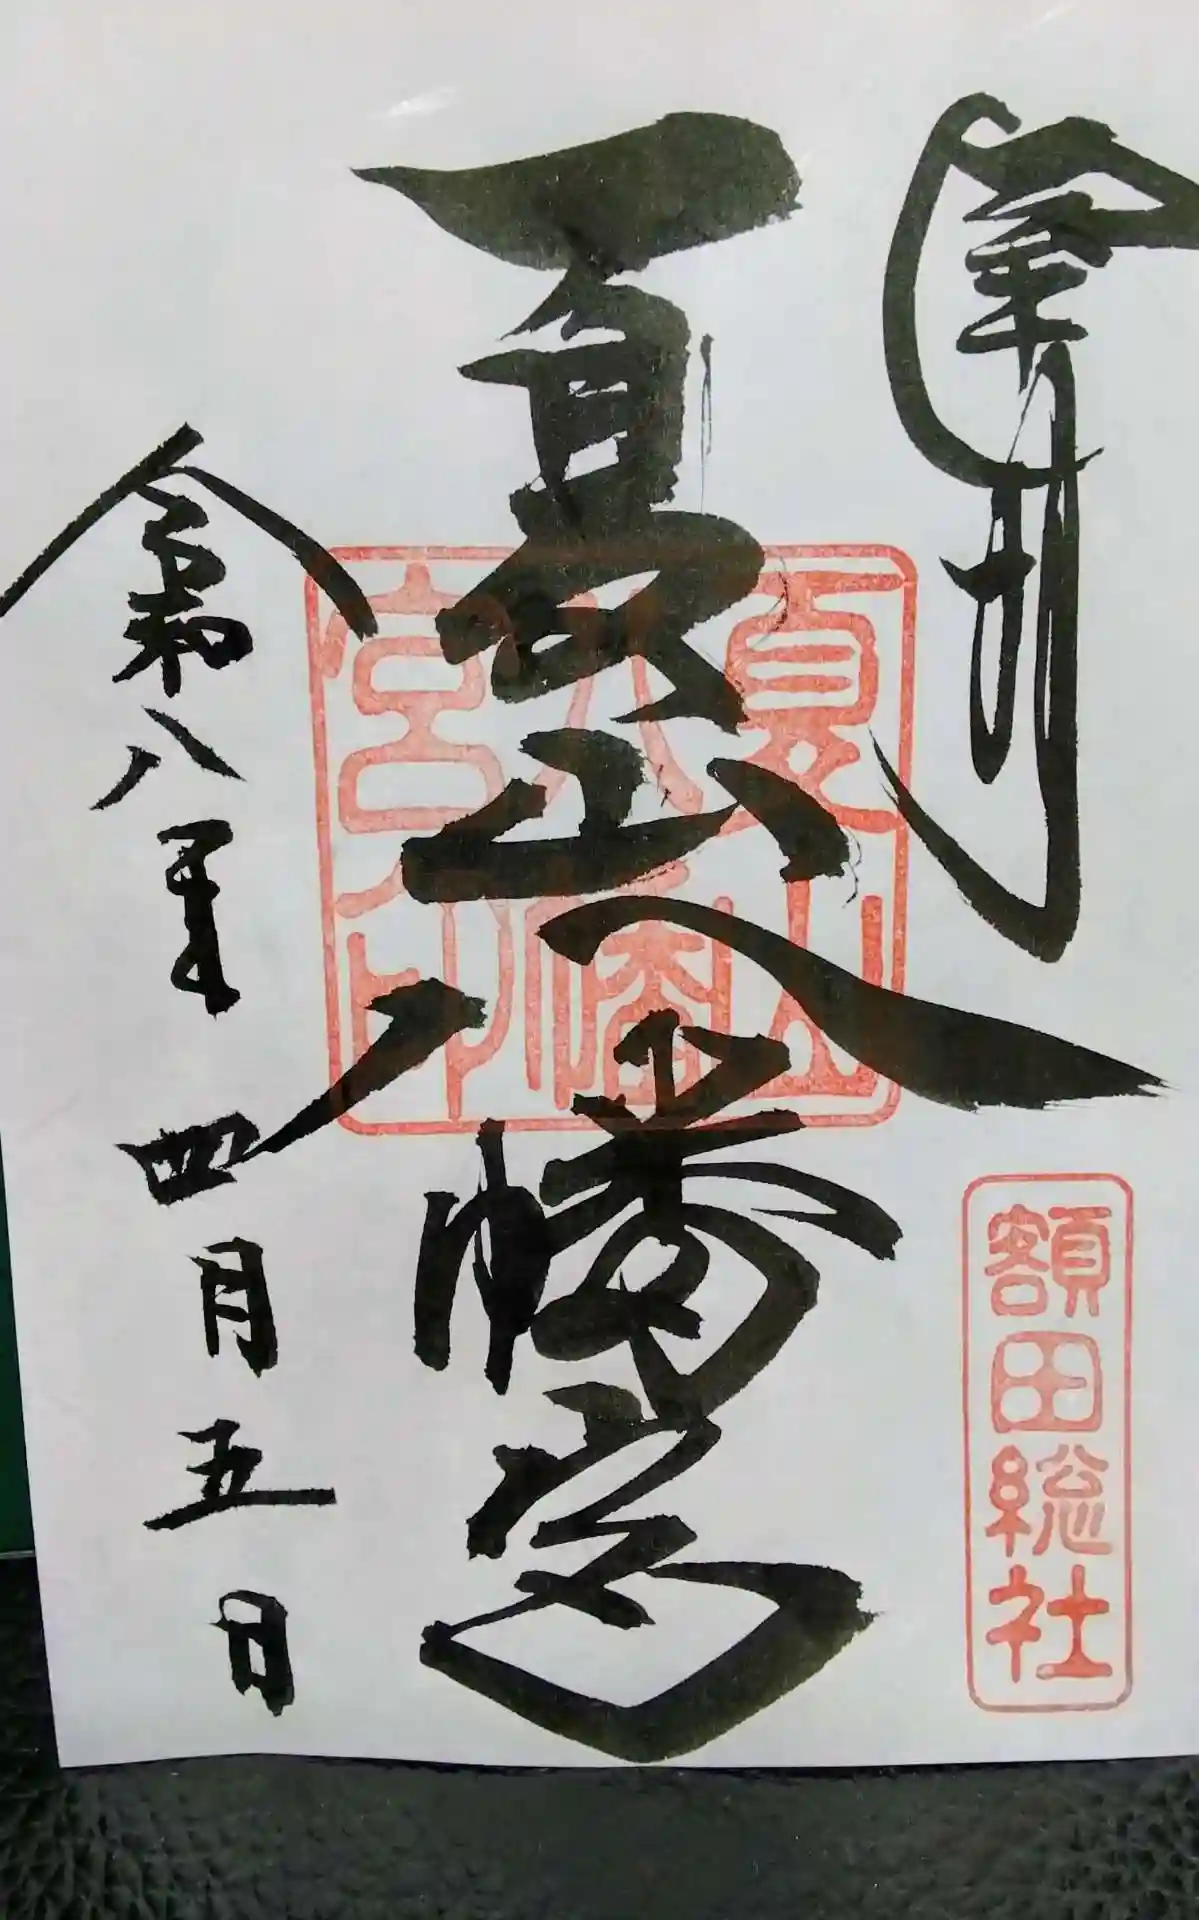 奉拝
額田総社
夏山八幡宮
夏山八幡宮印
令和八年四月五日